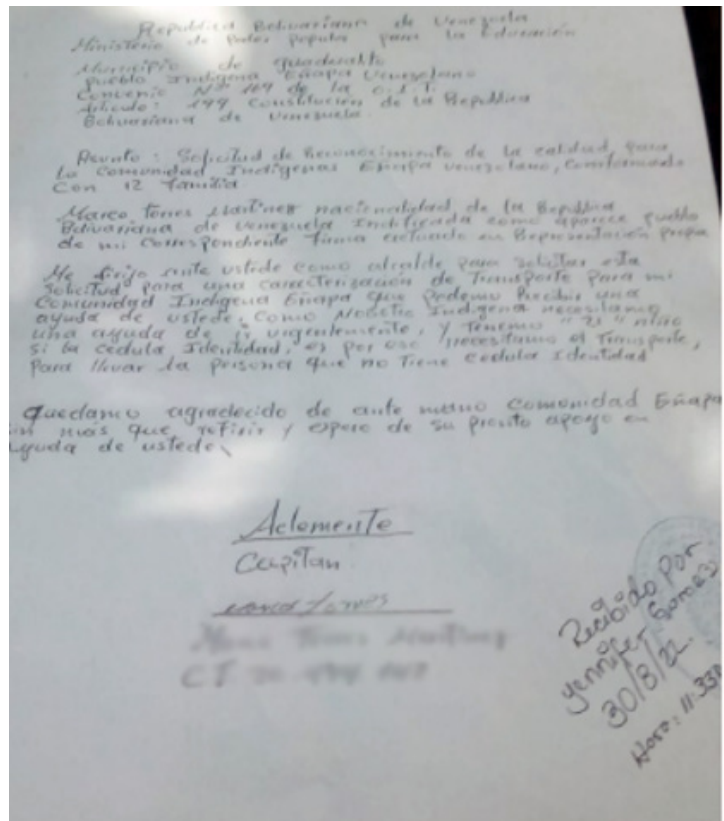 Republica Bolivariana de Venezuela
Ministerio de Poder popular para la Educación
Municipio de
pueblo Indigena Eñapa Venezolano
Convenio Nº 169 de la O.I.T.
Articulo: 199 Constitución de la Republica
Bolivariana de Venezuela
Asunto: Solicitud de Reconocimiento de la calidad, para
La Comunidad Indigenas Eñapa venezolano, Conformado
Con 12 familia
Marco Torres Martinez nacionalidad de la Republica
Bolivariana de Venezuela como aparece pueblo
de mi Correspondiente firma actuado en Representación propia
Me dirijo ante ustede como alcalde para solicitar esta
Solicitud para una caracterización de Transporte para mi
Comunidad Indigena Eñapa que podemo Recibir una
ayuda de ustede, como Nosotro Indigena necesitamo
una ayuda de urgentemente, y Tenemo "21" niño
si la cedula Idenlidad, es por eso necesitamo el Transporte,
Para llevar la persona que no Tiene cedula Idenlidad
Quedamo agradecido de ante mano comonidad Eñapa
sin más que refirir y espero de su pronto apoyo en
ayuda de ustede
Aclemente
Capitan
Torres
Recibido por
Yennifer
30/8/22.
Hora: 11:33